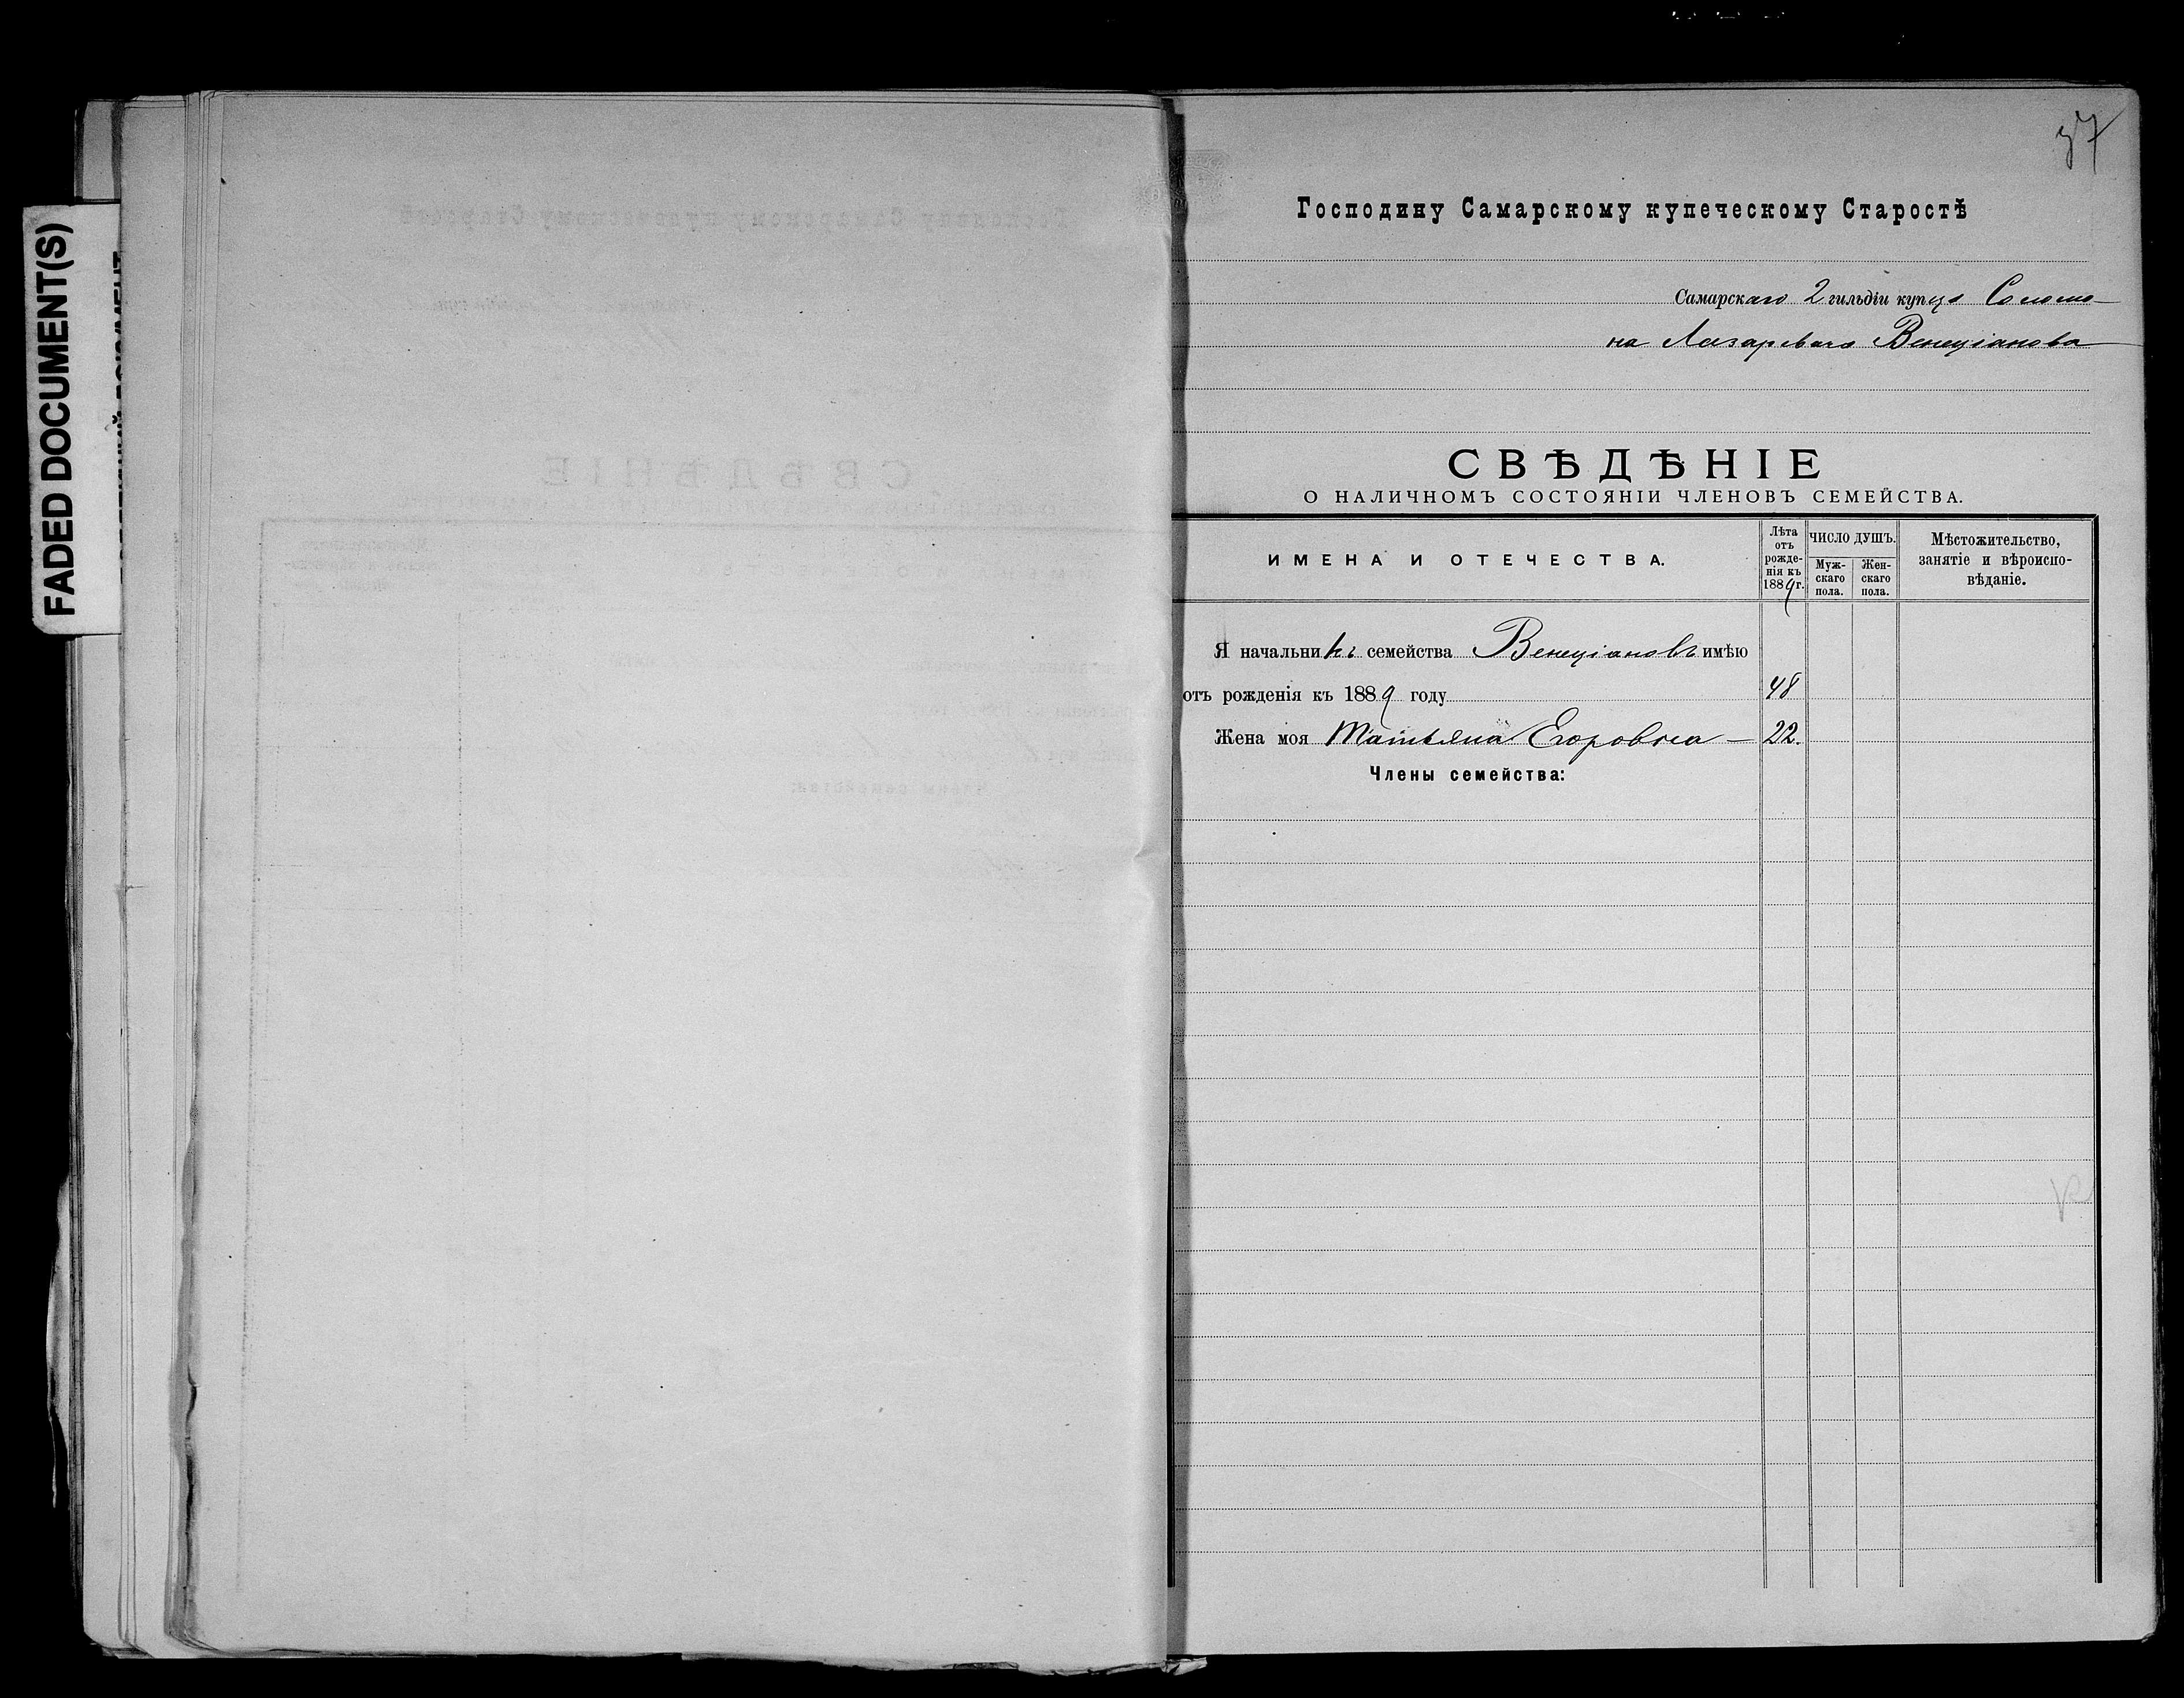 37
FADED DOCUMENT(S)
Господину Самарскому купеческому Старостѣ
Самарскаго 2 гильдіи купца Соломо-
на Лазаревича Венеціанова
СВѢДѢНІЕ
О НАЛИЧНОМЪ СОСТОЯНІИ ЧЛЕНОВЪ СЕМЕЙСТВА.
ИМЕНА И ОТЕЧЕСТВА.
Лѣта
отъ
рожде-
нія къ
1889 г.
ЧИСЛО ДУШЪ.
Муж-
скаго
пола.
Жен-
скаго
пола.
Мѣстожительство,
занятіе и вѣроиспо-
вѣданіе.
Я начальникъ семейства Венеціановъ имѣю
отъ рожденія къ 1889 году 48
Жена моя Татьяна Егоровна — 22.
Члены семейства: